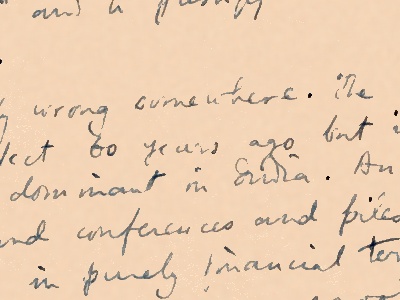 and
wrong somewhere. The
60 years ago but
dominant in India. An
and conferences and files
in purely financial